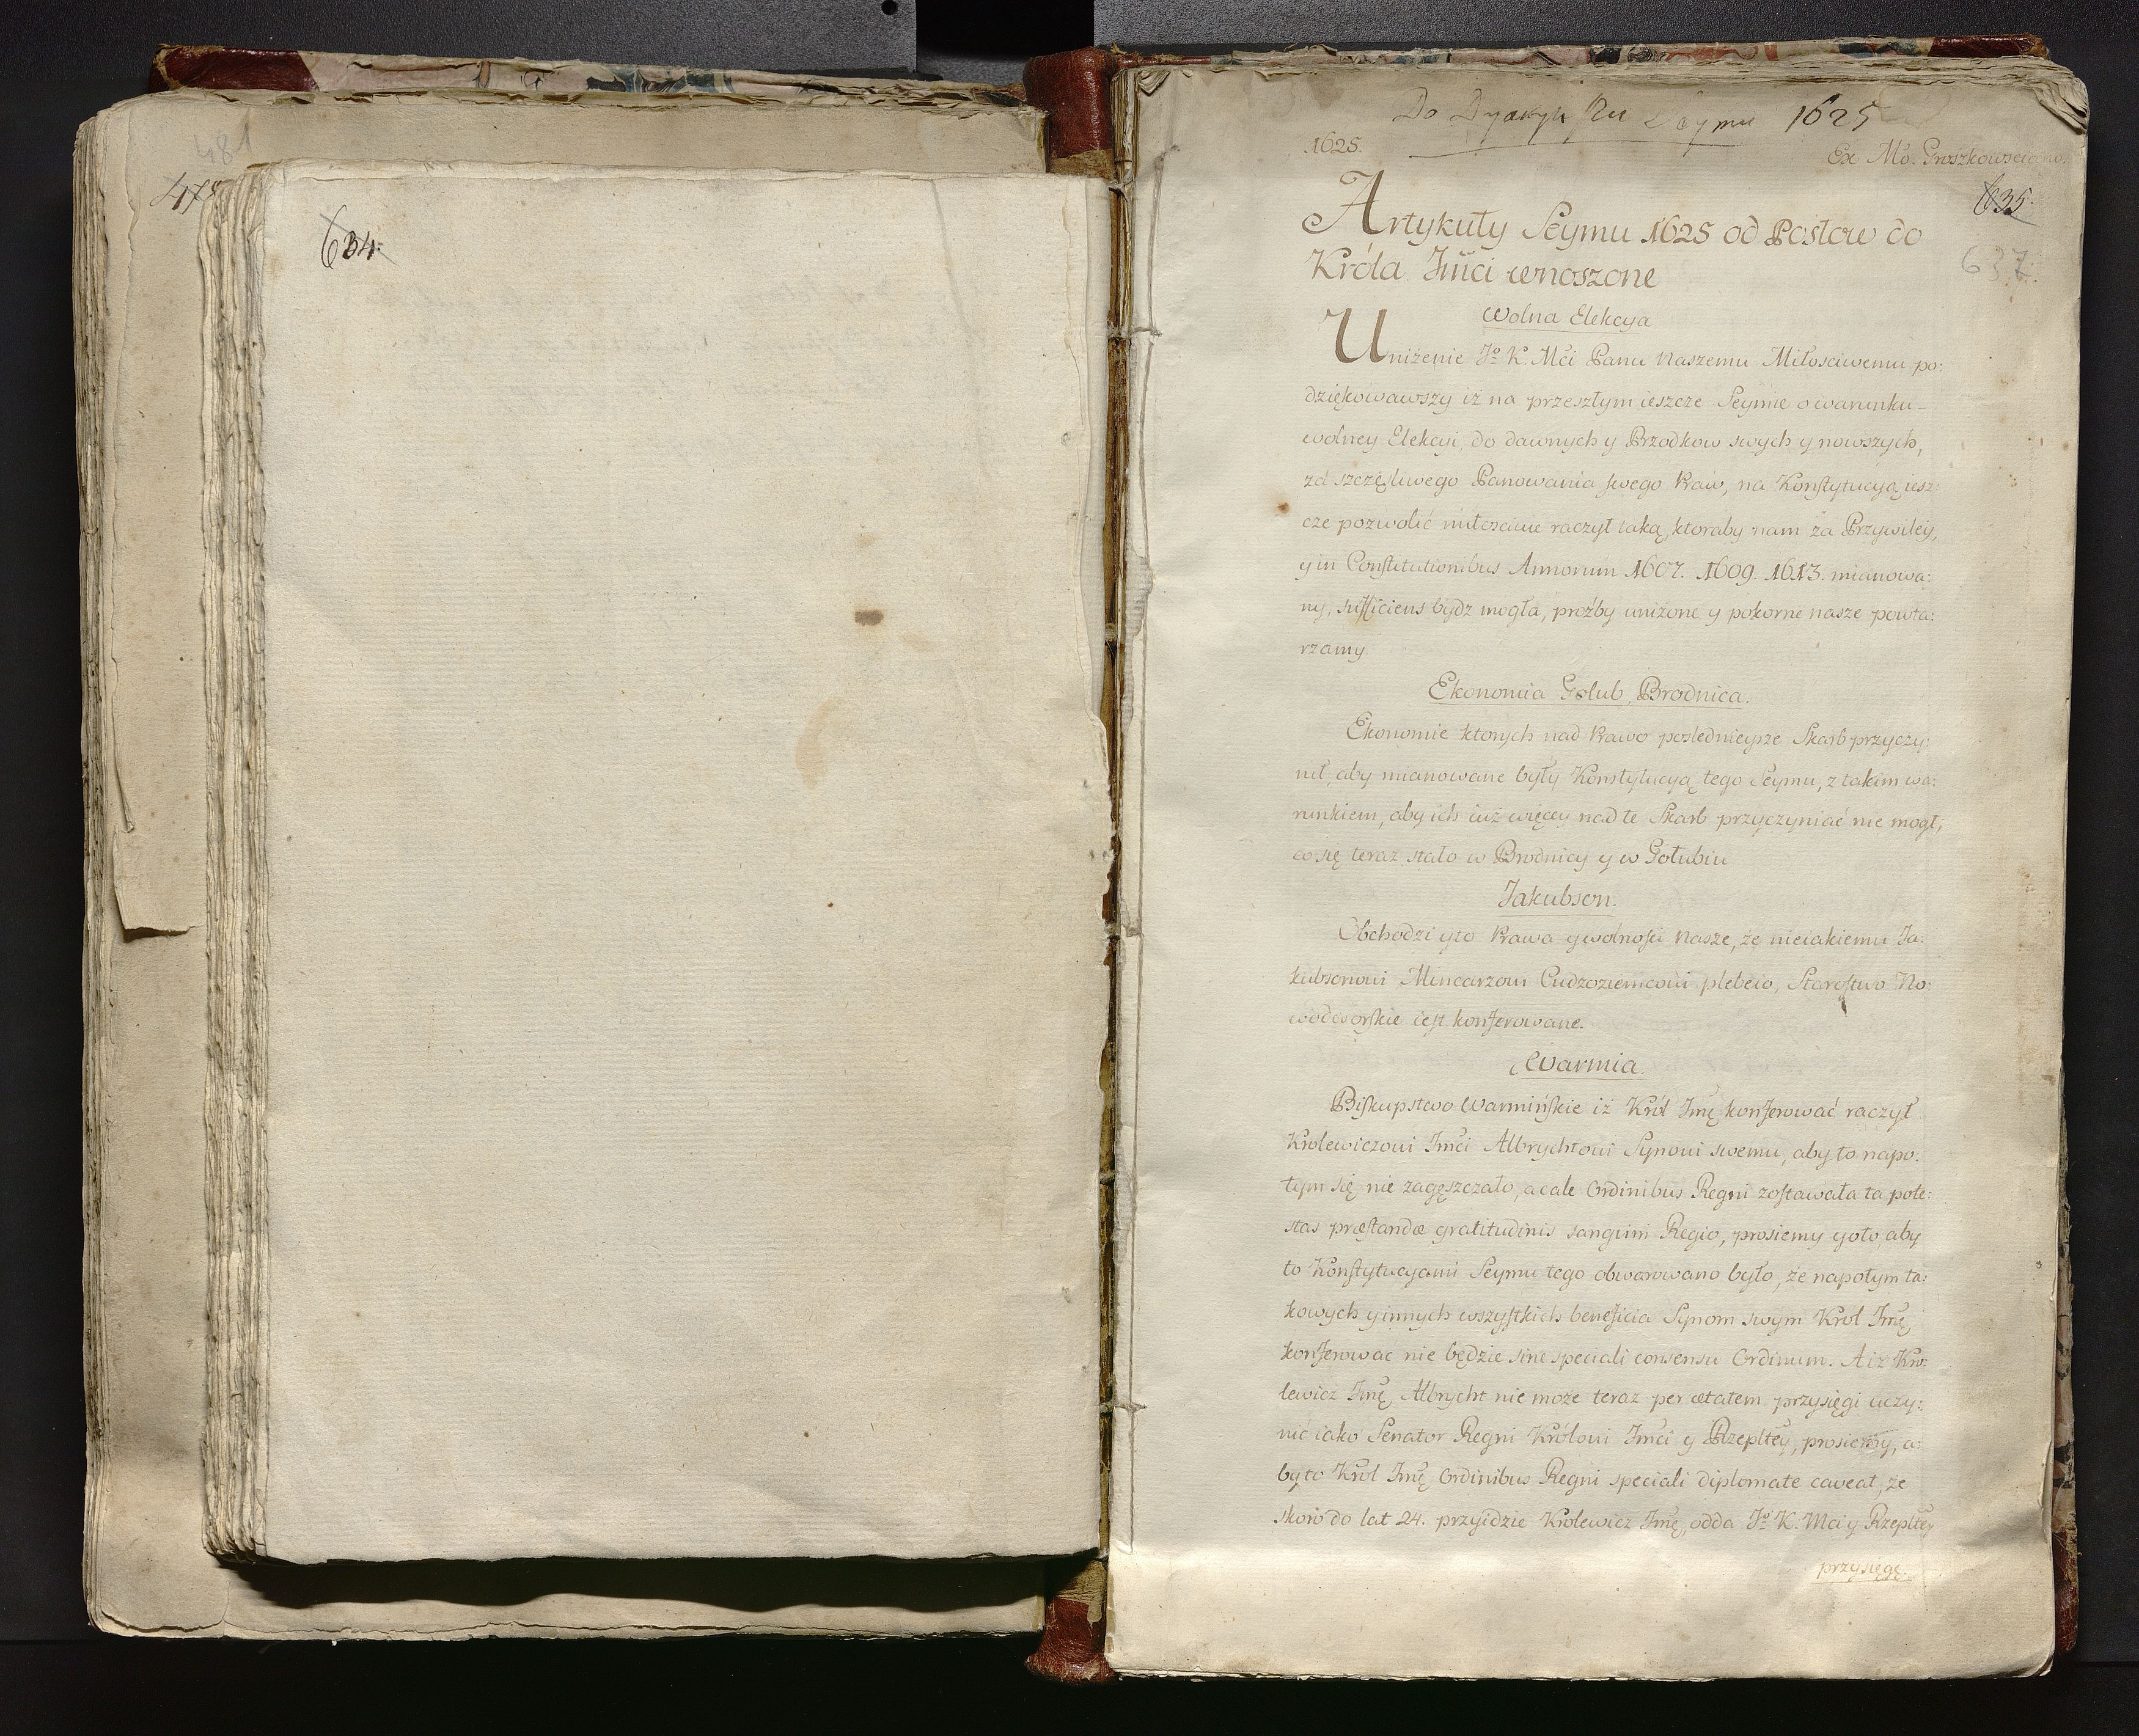 481
478
634.
Do Dyaryuszu Seymu 1625
1625.
Ex Mo. Groszkowsciano.
635.
637.
Artykuły Seymu 1625 od Posłow do
Króla Jmci wnoszone
Wolna Elekcya
Uniżenie Jº K. Mci Panu Naszemu Miłosciwemu po:
dziękowawszy iż na przeszłym ieszcze Seymie o warunku
wolney Elekcyi, do dawnych y Przodkow swych y nowszych,
za szczęsliwego Panowania swego Praw, na Konstytucyą iesz:
cze pozwolić miłosciwie raczył taką, ktoraby nam za Przywiley,
y in Constitutionibus Annorum 1607. 1609. 1613. mianowa:
ny, sufficiens bydz mogła, proźby uniżone y pokorne nasze powta:
rzamy
Ekonomia Golub, Brodnica.
Ekonomie ktorych nad Prawo poslednieysze Skarb przyczy:
nił, aby mianowane były Konstytucyą tego Seymu, z takim wa:
runkiem, aby ich iuż więcey nad te Skarb przyczyniać nie mogł,
co się teraz stało w Brodnicy y w Gołubiu
Jakubson.
Obchodzi y to Prawa y wolnosci Nasze, że nieiakiemu Ja:
kubsonowi Mincarzowi Cudzoziemcowi plebeio, Starostwo No:
wodworskie iest konferowane.
Warmia.
Biskupstwo Warmińskie iż Król Jmę konferować raczył
Krolewiczowi Jmci Albrychtowi Synowi swemu, aby to napo:
tym się nie zagęszczało, a cale Ordinibus Regni zostawała ta pote:
stas præstandæ gratitudinis sanguini Regio, prosiemy y o to, aby
to Konstytucyami Seymu tego obwarowano było, że napotym ta:
kowych y innych wszystkich beneficia Synom swym Krol Jmę
konferować nie będzie sine speciali consensu Ordinum. A iż Kro:
lewicz Jmę Albrycht nie może teraz per ætatem przysięgi uczy:
nić iako Senator Regni Królowi Jmci y Rzepltey, prosiemy, a:
by to Król Jmę Ordinibus Regni speciali diplomate caveat, że
skoro do lat 24. przyidzie Krolewicz Jmę, odda Jº K. Mci y Rzepltey
przysięgę.